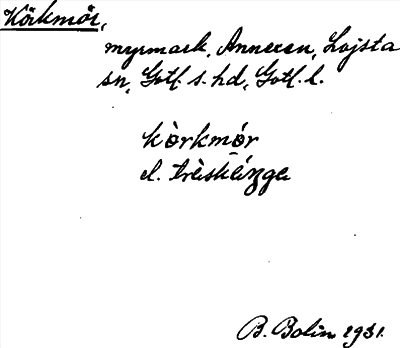 Körkmör,
myrmark, Annexen, Lojsta
sn, Gotl. s. hd, Gotl. l.
kòrkmór
el. trèskèzge
B. Bolin 1931.